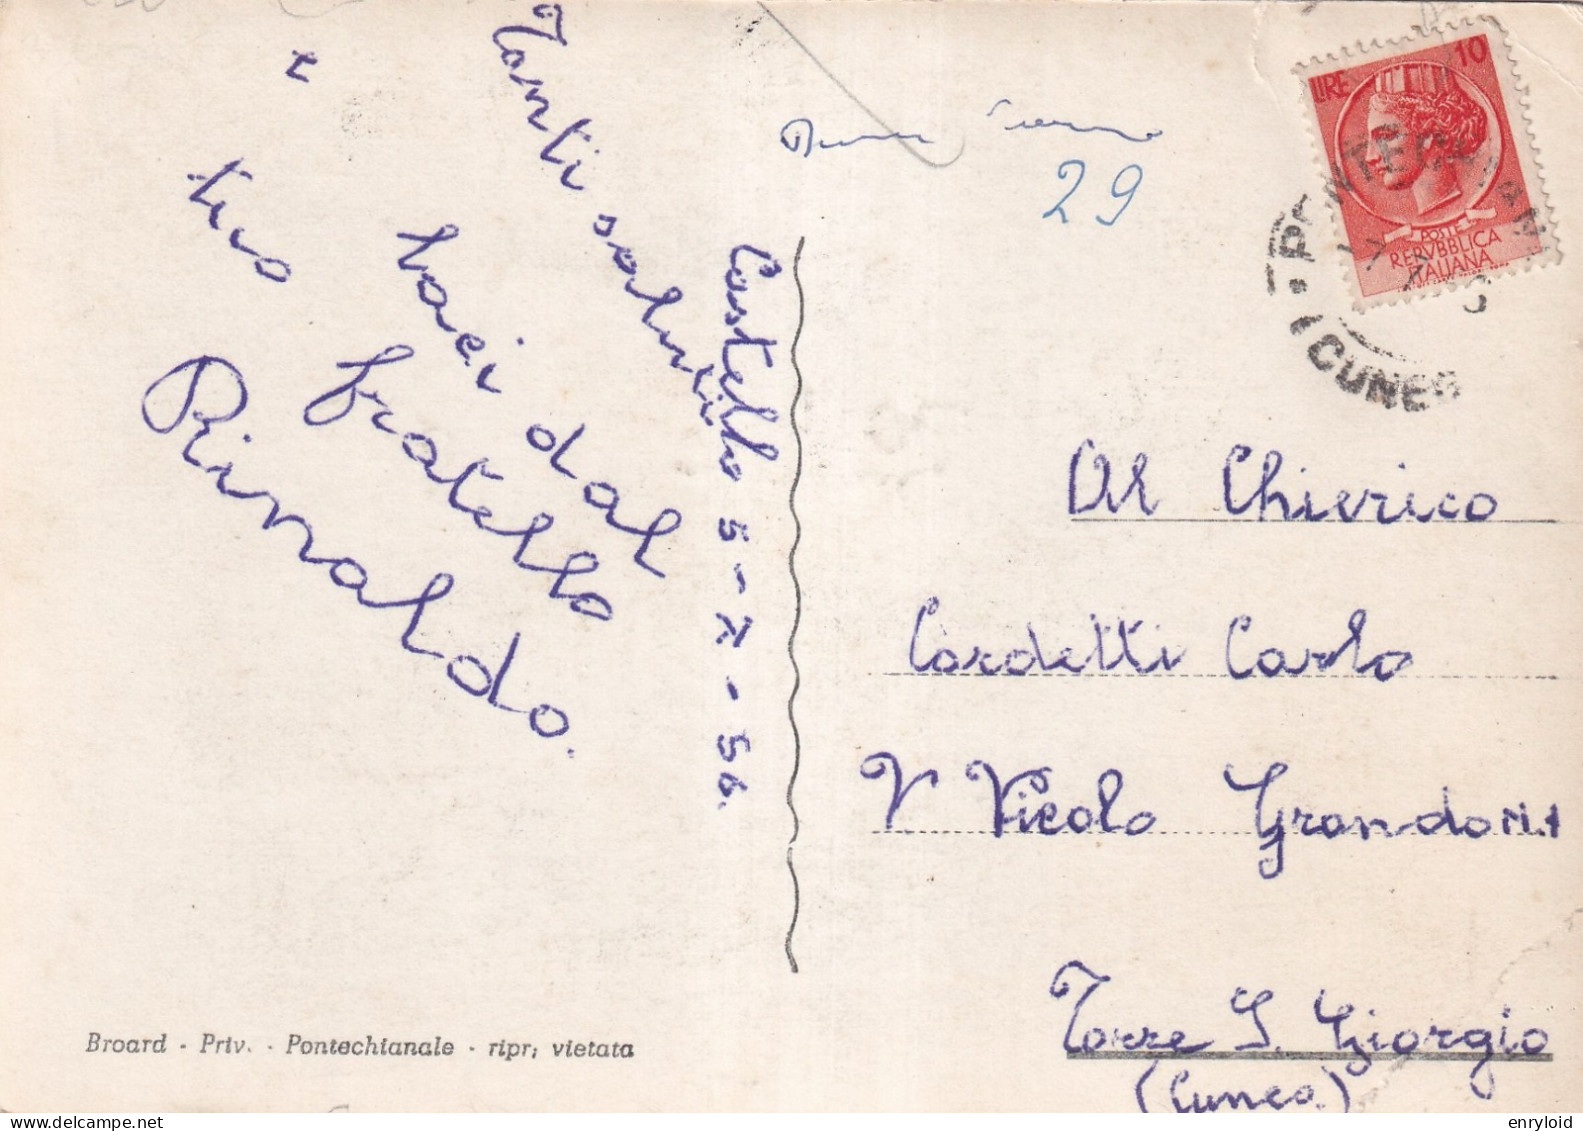 Castello 5-7-56.
Tanti saluti
e baci dal
tuo fratello
Rinaldo.
29
LIRE 10
POSTE
REPVBBLICA
ITALIANA
CUNEO
Al Chierico
Cardetti Carlo
V. Vicolo Grandoni 1
Torre S. Giorgio
(Cuneo)
Broard - Priv. - Pontechianale - ripr; vietata
enryloid